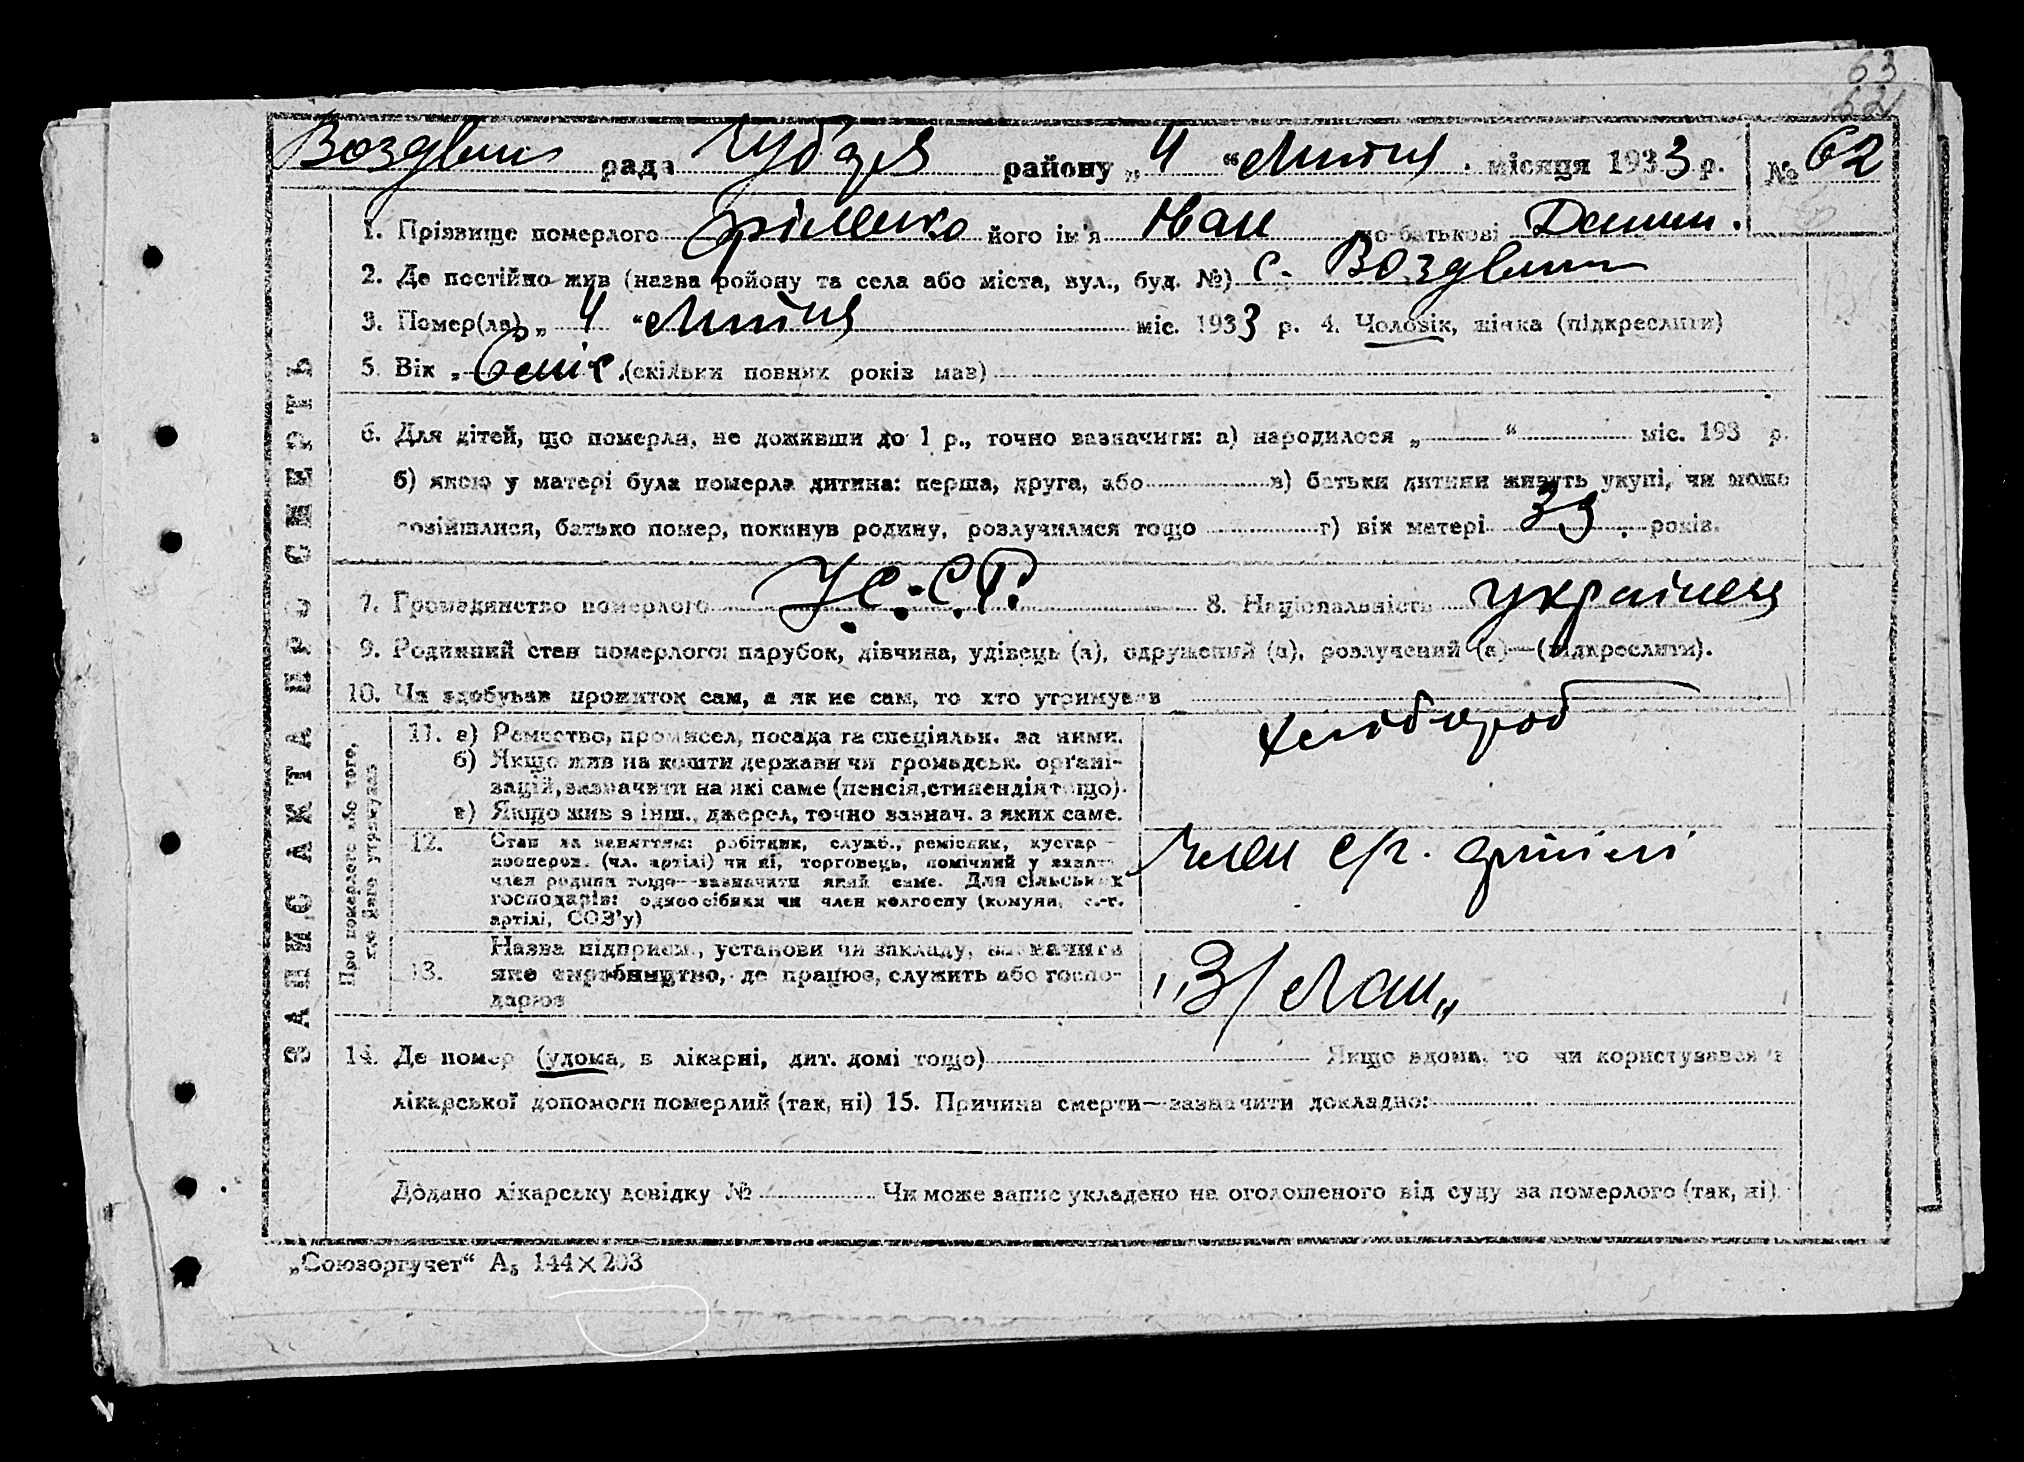 63
62
Воздвиж рада Чубар району „ 4 “ Липня місяця 1933 р. № 62
ЗАПИС АКТА ПРО СМЕРТЬ
1. Прізвище померлого його ім'я Іван по-батькові Данил.
2. Де постійно жив (назва району та села або міста, вул., буд. №) с. Воздвиж
3. Помер(ла) „ 4 “ Липня міс. 1933 р. 4. Чоловік, жінка (підкреслити)
5. Вік „ (скільки повних років мав)
6. Для дітей, що померли, не доживши до 1 р., точно зазначити: а) народилося „ “ міс. 193 р.
б) якою у матері була померла дитина: перша, друга, або в) батьки дитини живуть укупі, чи може
розійшлися, батько помер, покинув родину, розлучилися тощо г) вік матері 33 років.
7. Громадянство померлого У.С.С.Р. 8. Національність українец
9. Родинний стан померлого: парубок, дівчина, удівець (а), одружений (а), розлучений (а)—(підкреслити).
10. Чи здобував прожиток сам, а як не сам, то хто утримував
Про померлого або того, що його утримував
11. а) Ремество, промисел, посада та спеціяльн. за ними. хлібороб
б) Якщо жив на кошти держави чи громадськ. органі-
зацій, зазначити на які саме (пенсія, стипендія тощо).
в) Якщо жив з інш., джерел, точно зазнач. з яких саме.
12. Стан за заняттям: робітник, служб., ремісник, кустар—
кооперов. (чл. артілі) чи ні, торговець, помічний у занят. член с/г. артілі
член родини тощо—зазначити який саме. Для сільських
господарів: одноосібник чи член колгоспу (комуни, с.-г.
артілі, СОЗ'у)
13. Назва підприєм., установи чи закладу, зазначити
яке виробництво, де працює, служить або госпо- „З/Лан„
дарює
14. Де помер (удома, в лікарні, дит. домі тощо) Якщо вдома, то чи користувався з
лікарської допомоги померлий (так, ні) 15. Причина смерти—зазначити докладно:
Додано лікарську довідку № Чи може запис укладено на оголошеного від суду за померлого (так, ні)
„Союзоргучет“ А5 144×203